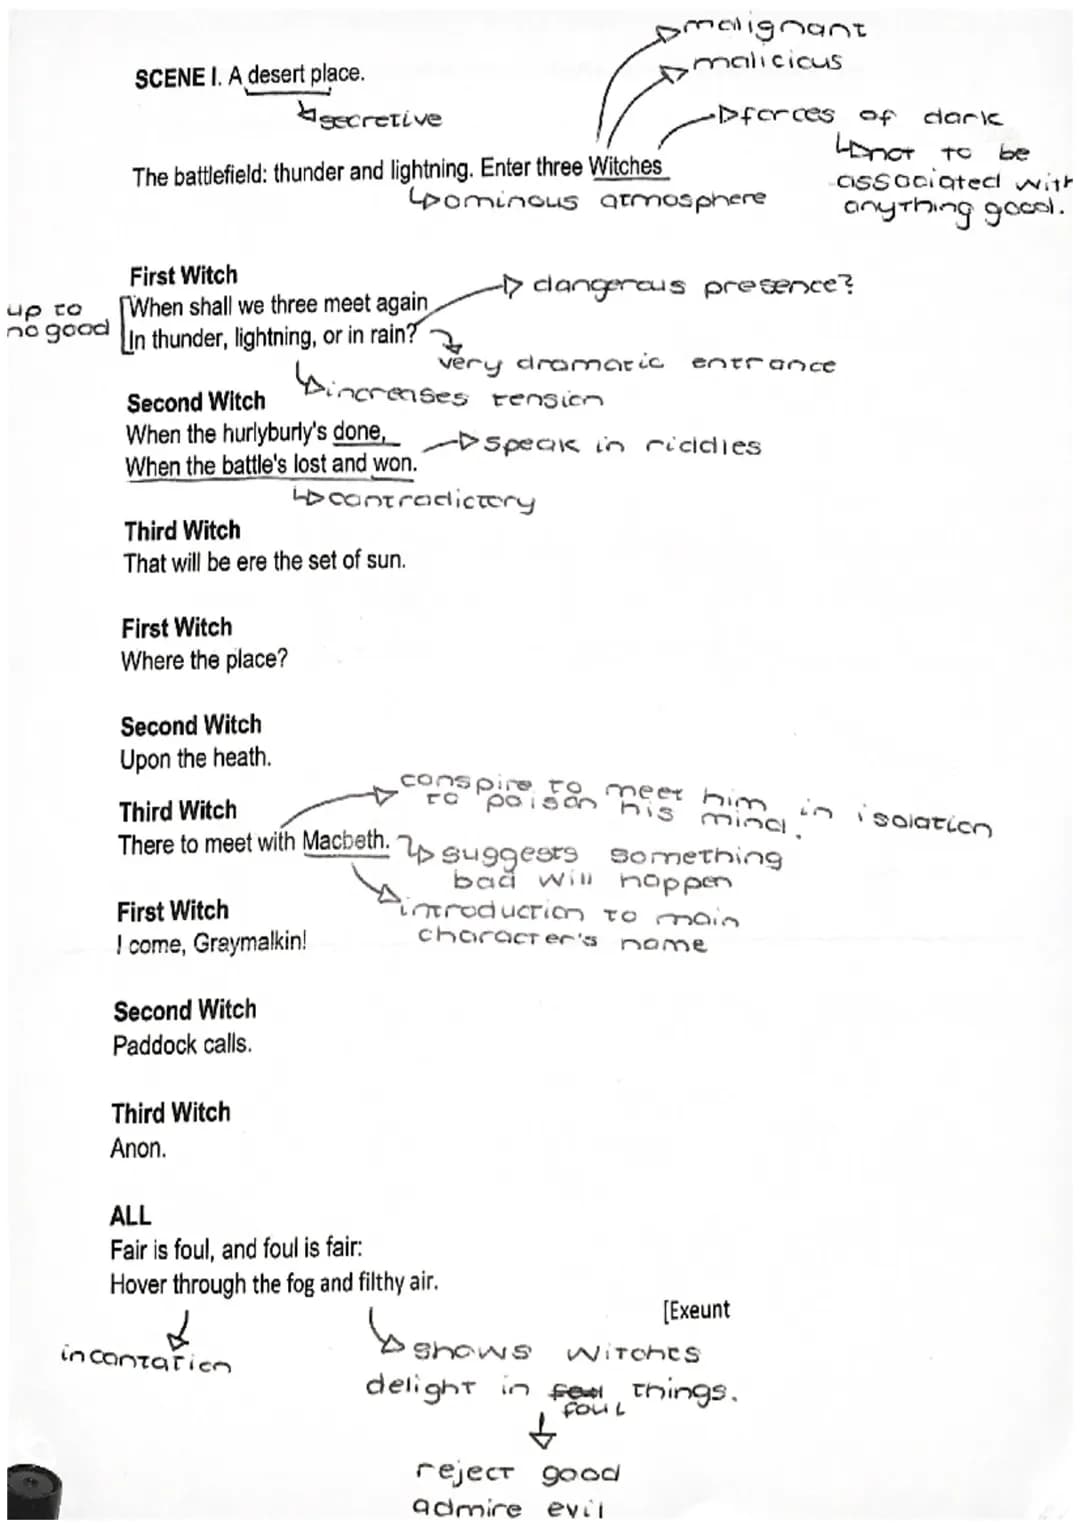 malignant
malicious
SCENE I. A desert place.
secretive
forces of dark
not to be
associated with
anything good.
The battlefield: thunder and lightning. Enter three Witches
ominous atmosphere
First Witch
dangerous presence?
up to
no good
When shall we three meet again
In thunder, lightning, or in rain?
very dramatic entrance
increases tension
Second Witch
When the hurlyburly's done,
speak in riddles
When the battle's lost and won.
contradictory
Third Witch
That will be ere the set of sun.
First Witch
Where the place?
Second Witch
Upon the heath.
conspire to meet him in isolation
to poison his mind.
Third Witch
There to meet with Macbeth.
suggests something
bad will happen
introduction to main
character's name
First Witch
I come, Graymalkin!
Second Witch
Paddock calls.
Third Witch
Anon.
ALL
Fair is foul, and foul is fair:
Hover through the fog and filthy air.
[Exeunt
incantation
shows witches
delight in foul things.
reject good
admire evil